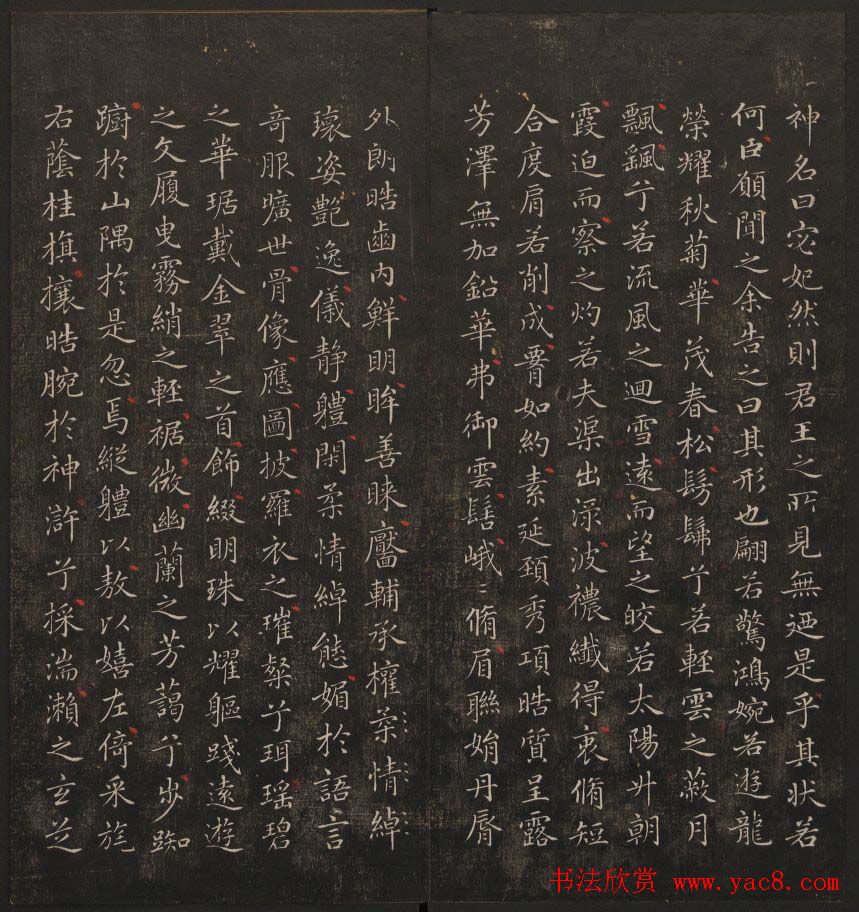 神名曰宓妃然則君王之所見無迺是乎其狀若
何臣願聞之余告之曰其形也翩若驚鴻婉若遊龍
榮耀秋菊華茂春松髣髴兮若輕雲之蔽月
飄颻兮若流風之迴雪遠而望之皎若太陽升朝
霞迫而察之灼若夫渠出淥波襛纖得衷脩短
合度肩若削成腰如約素延頸秀項皓質呈露
芳澤無加鉛華弗御雲髻峨〻脩眉聯娟丹脣
外朗皓齒內鮮明眸善睞靨輔承權柔情綽
瓌姿艷逸儀靜體閑柔情綽態媚於語言
奇服曠世骨像應圖披羅衣之璀粲兮珥瑤碧
之華琚戴金翠之首飾綴明珠以耀軀踐遠遊
之文履曳霧綃之輕裾微幽蘭之芳藹兮步踟
躕於山隅於是忽焉縱體以敖以嬉左倚采旄
右蔭桂旗攘皓腕於神滸兮採湍瀨之玄芝
书法欣赏 www.yac8.com